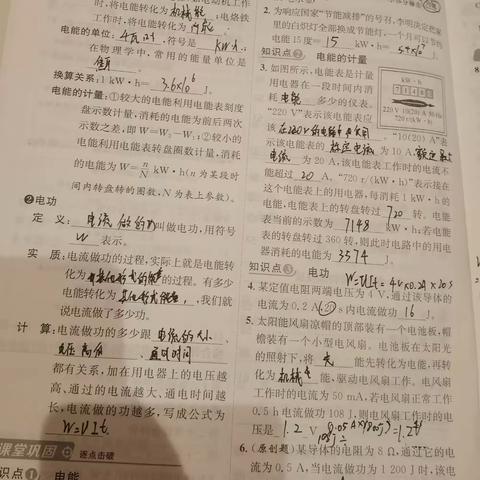 时,将电能转化为机械能;电烙铁
工作时,将电能转化为内能.
电能的单位:千瓦时,符号是kW·h;
在物理学中,常用的能量单位是
换算关系:1 kW·h=3.6×10⁶J.
电能的计量:①较大的电能利用电能表刻度
盘示数计量,消耗的电能为前后两次
示数之差,即W=W₂-W₁;②较小的
电能利用电能表转盘圈数计量,消耗
的电能为W=n/N kW·h(n为某段时
间内转盘转的圈数,N为表上参数).
❷电功
定义:电流做的功叫做电功,用符号
W表示.
实质:电流做功的过程,实际上就是电能转
化为其他形式的能的过程.有多少
电能转化为其他形式的能,我们就
说电流做了多少功.
计算:电流做功的多少跟电流的大小、
电压高低、通电时间
都有关系,加在用电器上的电压越
高、通过的电流越大、通电时间越
长,电流做的功越多,写成公式为
W=UIt.
课堂巩固 逐点击破
识点① 电能
2.为响应国家“节能减排”的号召,李明决定把家
里的白炽灯全部换成节能灯,一个月可以节约
电能15度=15 kW·h=5.4×10⁷J.
知识点② 电能的计量
3.如图所示,电能表是计量
用电器在一段时间内消
耗电能多少的仪表.
“220 V”表示该电能表应
该在220V的电路中使用,“10(20) A”表
示该电能表的标定电流为10 A,额定最大
电流为20 A,该电能表工作时的电流不
能超过20 A.“720 r/(kW·h)”表示接在
这个电能表上的用电器,每消耗1 kW·h的
电能,电能表上的转盘转过720转.电能
表当前的示数为7148 kW·h;若电能
表的转盘转过360转,则此时电路中的用电
器消耗的电能为3574 J.
kW·h
220 V 10(20)A 50Hz
720 r/kW·h
知识点③ 电功
W=UIt=4V×0.2A×20s
4.某定值电阻两端电压为4 V,通过该导体的
电流为0.2 A,20 s内电流做功16 J.
5.太阳能风扇凉帽的顶部装有一个电池板,帽
檐装有一个小型电风扇.电池板在太阳光
的照射下,将光能先转化为电能,再转
化为机械能,驱动电风扇工作.电风扇
工作时的电流为50 mA,若电风扇正常工作
0.5 h电流做功108 J,则电风扇工作时的电
压是1.2 V.
6.(原创题)某导体的电阻为8 Ω,通过它的电
流为0.5 A,当电流做功为1 200 J时,该电